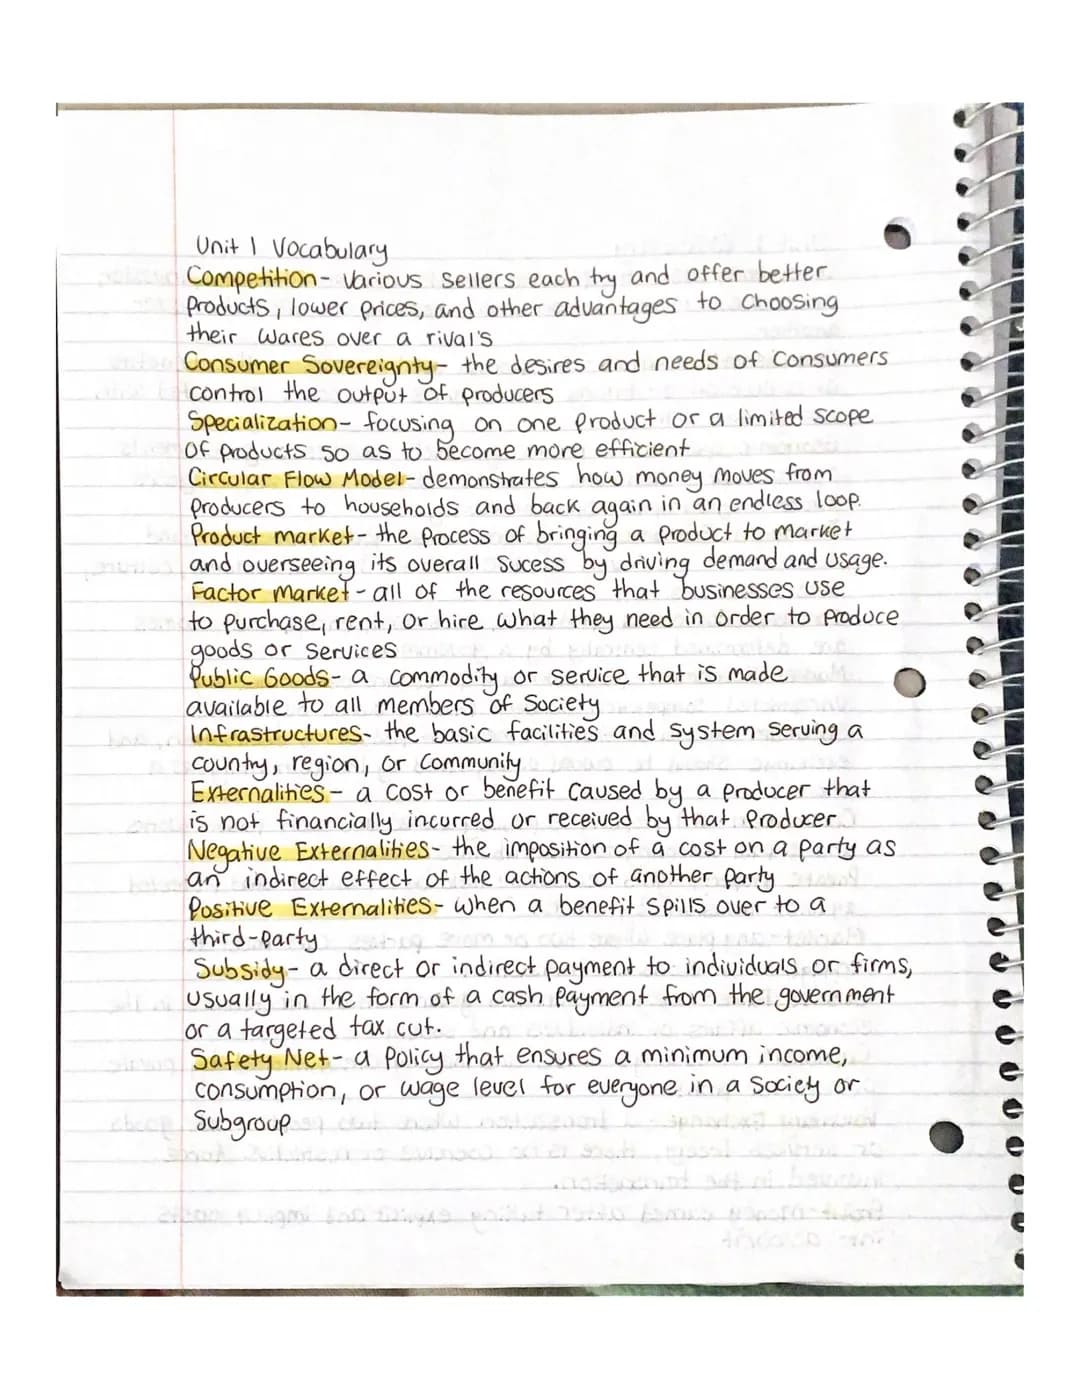 Unit 1 Vocabulary
Competition- Various Sellers each try and offer better
Products, lower prices, and other advantages to Choosing
their wares over a rival's
Consumer Sovereignty- the desires and needs of Consumers
control the output of producers
Specialization- focusing on one product or a limited scope
Of products so as to become more efficient
Circular Flow Model- demonstrates how money moves from
Producers to households and back again in an endless loop.
Product market- the Process of bringing a product to market
and overseeing its overall Sucess by driving demand and usage.
Factor Market- all of the resources that businesses use
to purchase, rent, or hire what they need in order to produce
goods or Services
Public Goods- a commodity or service that is made
available to all members of Society
Infrastructures- the basic facilities and System serving a
Country, region, or Community
Externalities- a cost or benefit caused by a producer that
is not financially incurred or received by that Producer
Negative Externalities- the imposition of a cost on a party as
an indirect effect of the actions of another party
Positive Externalities- when a benefit spills over to a
third-Party
Subsidy- a direct or indirect payment to individuals or firms,
usually in the form of a cash Payment from the government
or a targeted tax cut.
Safety Net- a Policy that ensures a minimum income,
consumption, or wage level for everyone in a Society or
Subgroup